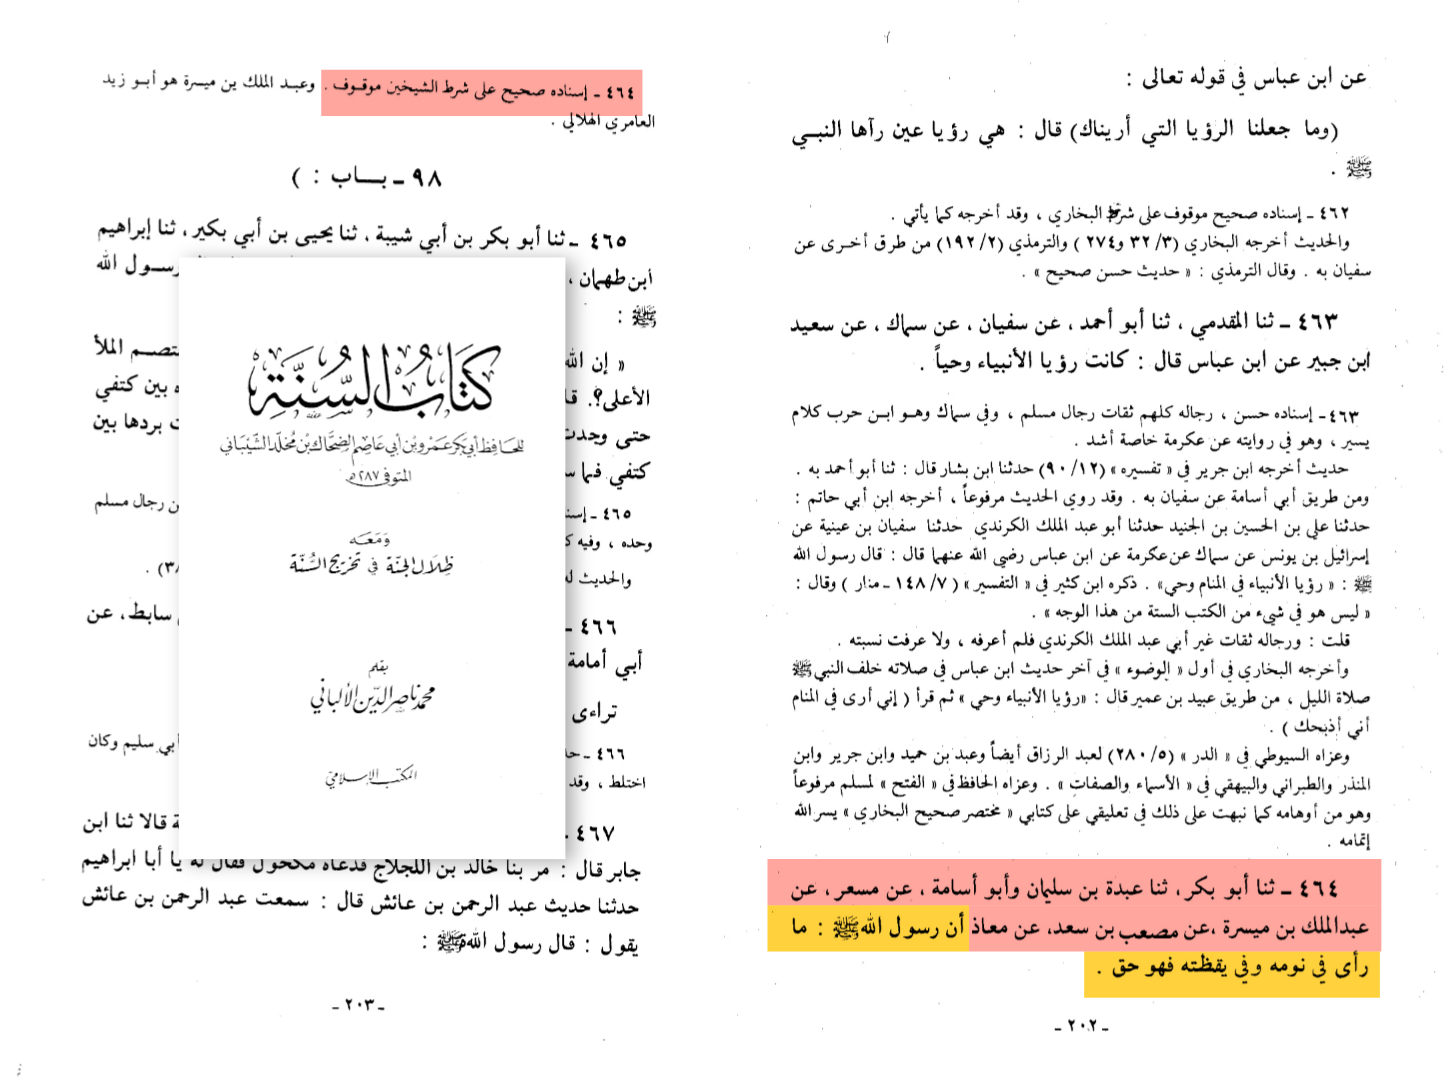 عن ابن عباس في قوله تعالى :
(وما جعلنا الرؤيا التي أريناك) قال : هي رؤيا عين رآها النبي
ﷺ .
٤٦٢ ـ إسناده صحيح موقوف على شرط البخاري ، وقد أخرجه كما يأتي .
والحديث أخرجه البخاري (٣٢/٣ و٢٧٤ ) والترمذي (١٩٢/٢) من طرق أخرى عن
سفيان به . وقال الترمذي : « حديث حسن صحيح » .
٤٦٣ ـ ثنا المقدمي ، ثنا أبو أحمد ، عن سفيان ، عن سماك ، عن سعيد
ابن جبير عن ابن عباس قال : كانت رؤيا الأنبياء وحياً .
٤٦٣ـ إسناده حسن ، رجاله كلهم ثقات رجال مسلم ، وفي سماك وهو ابن حرب كلام
يسير ، وهو في روايته عن عكرمة خاصة أشد .
حديث أخرجه ابن جرير في « تفسيره » (٩٠/١٢) حدثنا ابن بشار قال : ثنا أبو أحمد به .
ومن طريق أبي أسامة عن سفيان به . وقد روي الحديث مرفوعاً ، أخرجه ابن أبي حاتم :
حدثنا علي بن الحسين بن الجنيد حدثنا أبو عبد الملك الكرندي حدثنا سفيان بن عينية عن
إسرائيل بن يونس عن سماك عن عكرمة عن ابن عباس رضي الله عنهما قال : قال رسول الله
ﷺ : « رؤيا الأنبياء في المنام وحي» . ذكره ابن كثير في « التفسير » ( ١٤٨/٧ ـ منار ) وقال :
« ليس هو في شيء من الكتب الستة من هذا الوجه » .
قلت : ورجاله ثقات غير أبي عبد الملك الكرندي فلم أعرفه ، ولا عرفت نسبته .
وأخرجه البخاري في أول « الوضوء » في آخر حديث ابن عباس في صلاته خلف النبي ﷺ
صلاة الليل ، من طريق عبيد بن عمير قال : «رؤيا الأنبياء وحي » ثم قرأ ( إني أرى في المنام
أني أذبحك ) .
وعزاه السيوطي في « الدر » (٢٨٠/٥) لعبد الرزاق أيضاً وعبد بن حميد وابن جرير وابن
المنذر والطبراني والبيهقي في « الأسماء والصفات » . وعزاه الحافظ في « الفتح » لمسلم مرفوعاً
وهو من أوهامه كما نبهت على ذلك في تعليقي على كتابي « مختصر صحيح البخاري » يسر الله
إتمامه .
٤٦٤ ـ ثنا أبو بكر ، ثنا عبدة بن سليمان وأبو أسامة ، عن مسعر ، عن
عبدالملك بن ميسرة ،عن مصعب بن سعد، عن معاذ أن رسول الله ﷺ : ما
رأى في نومه وفي يقظته فهو حق .
ـ ٢٠٢ ـ
٤٦٤ ـ إسناده صحيح على شرط الشيخين موقوف . وعبد الملك بن ميسرة هو أبو زيد
العامري الهلالي .
٩٨ ـ بـاب : )
٤٦٥ ـ ثنا أبو بكر بن أبي شيبة ، ثنا يحيى بن أبي بكير ، ثنا إبراهيم
ابن طهمان ، رسول الله
ﷺ :
« إن الله الملأ
الأعلى؟. بين كتفي
حتى بردها بين
كتفي فما
٤٦٥ ـ رجال مسلم
وحده ، وفيه
والحديث
٤٦٦ ـ سابط ، عن
أبي أمامة
تراءى
٤٦٦ ـ أبي سليم وكان
اختلط ، وقد
٤٦٧ قالا ثنا ابن
جابر قال : مر بنا خالد بن اللجلاج فدعاه مكحول فقال له يا أبا ابراهيم
حدثنا حديث عبد الرحمن بن عائش قال : سمعت عبد الرحمن بن عائش
يقول : قال رسول الله ﷺ :
ـ ٢٠٣ ـ
كتاب السنة
للحافظ أبي بكر عمرو بن أبي عاصم الضحاك بن مخلد الشيباني
المتوفى ٢٨٧ هـ
ومعه
ظلال الجنة في تخريج السنة
بقلم
محمد ناصر الدين الألباني
المكتب الإسلامي